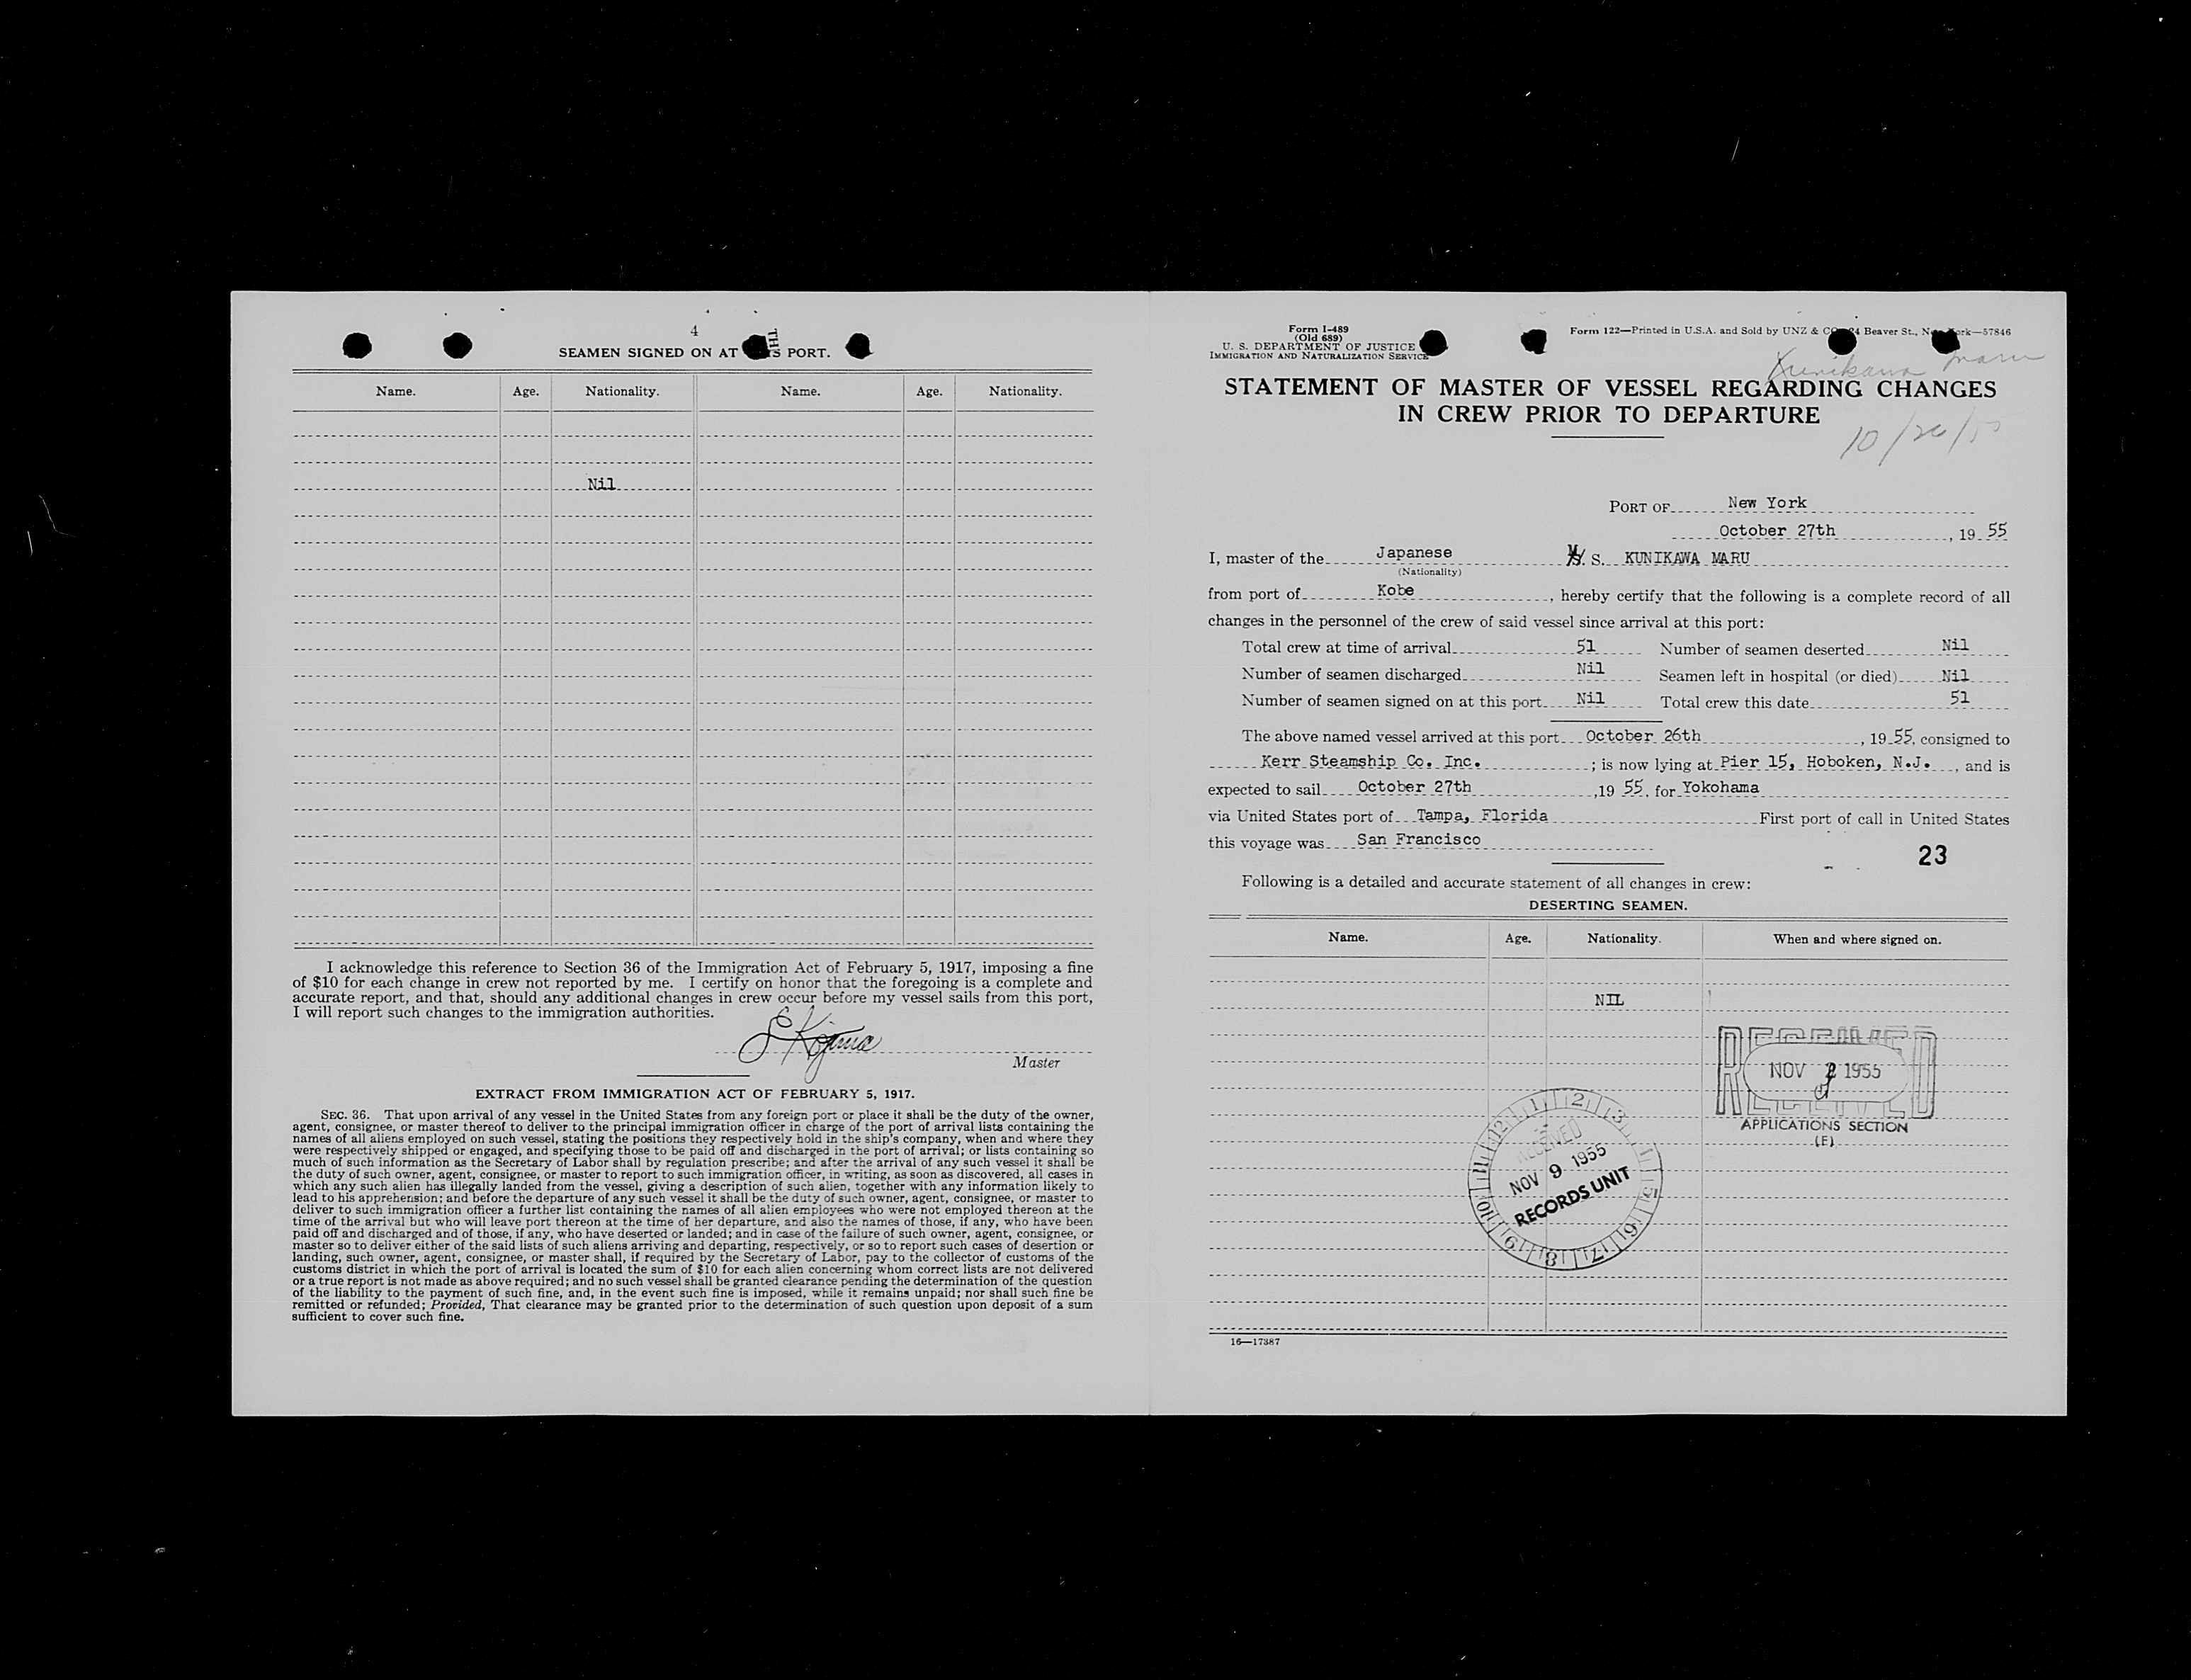 4
SEAMEN SIGNED ON AT THIS PORT.
Name. Age. Nationality. Name. Age. Nationality.
Nil
I acknowledge this reference to Section 36 of the Immigration Act of February 5, 1917, imposing a fine
of $10 for each change in crew not reported by me. I certify on honor that the foregoing is a complete and
accurate report, and that, should any additional changes in crew occur before my vessel sails from this port,
I will report such changes to the immigration authorities.
Master
EXTRACT FROM IMMIGRATION ACT OF FEBRUARY 5, 1917.
SEC. 36. That upon arrival of any vessel in the United States from any foreign port or place it shall be the duty of the owner,
agent, consignee, or master thereof to deliver to the principal immigration officer in charge of the port of arrival lists containing the
names of all aliens employed on such vessel, stating the positions they respectively hold in the ship's company, when and where they
were respectively shipped or engaged, and specifying those to be paid off and discharged in the port of arrival; or lists containing so
much of such information as the Secretary of Labor shall by regulation prescribe; and after the arrival of any such vessel it shall be
the duty of such owner, agent, consignee, or master to report to such immigration officer, in writing, as soon as discovered, all cases in
which any such alien has illegally landed from the vessel, giving a description of such alien, together with any information likely to
lead to his apprehension; and before the departure of any such vessel it shall be the duty of such owner, agent, consignee, or master to
deliver to such immigration officer a further list containing the names of all alien employees who were not employed thereon at the
time of the arrival but who will leave port thereon at the time of her departure, and also the names of those, if any, who have been
paid off and discharged and of those, if any, who have deserted or landed; and in case of the failure of such owner, agent, consignee, or
master so to deliver either of the said lists of such aliens arriving and departing, respectively, or so to report such cases of desertion or
landing, such owner, agent, consignee, or master shall, if required by the Secretary of Labor, pay to the collector of customs of the
customs district in which the port of arrival is located the sum of $10 for each alien concerning whom correct lists are not delivered
or a true report is not made as above required; and no such vessel shall be granted clearance pending the determination of the question
of the liability to the payment of such fine, and, in the event such fine is imposed, while it remains unpaid; nor shall such fine be
remitted or refunded; Provided, That clearance may be granted prior to the determination of such question upon deposit of a sum
sufficient to cover such fine.
Form I-489
(Old 689)
U. S. DEPARTMENT OF JUSTICE
IMMIGRATION AND NATURALIZATION SERVICE
Form 122—Printed in U.S.A. and Sold by UNZ & CO. 24 Beaver St., New York—57846
Kunikawa Maru
STATEMENT OF MASTER OF VESSEL REGARDING CHANGES
IN CREW PRIOR TO DEPARTURE
10/26/55
PORT OF New York
October 27th, 19 55
I, master of the Japanese M. S. KUNIKAWA MARU
(Nationality)
from port of Kobe, hereby certify that the following is a complete record of all
changes in the personnel of the crew of said vessel since arrival at this port:
Total crew at time of arrival 51 Number of seamen deserted Nil
Number of seamen discharged Nil Seamen left in hospital (or died) Nil
Number of seamen signed on at this port Nil Total crew this date 51
The above named vessel arrived at this port October 26th, 19 55, consigned to
Kerr Steamship Co. Inc.; is now lying at Pier 15, Hoboken, N.J., and is
expected to sail October 27th, 19 55, for Yokohama
via United States port of Tampa, Florida First port of call in United States
this voyage was San Francisco
23
Following is a detailed and accurate statement of all changes in crew:
DESERTING SEAMEN.
Name. Age. Nationality. When and where signed on.
NIL
RECEIVED
NOV 2 1955
APPLICATIONS SECTION
(E)
12 1 2 3 4 5 6 7 8 9 10 11
RECEIVED
NOV 9 1955
RECORDS UNIT
16—17387